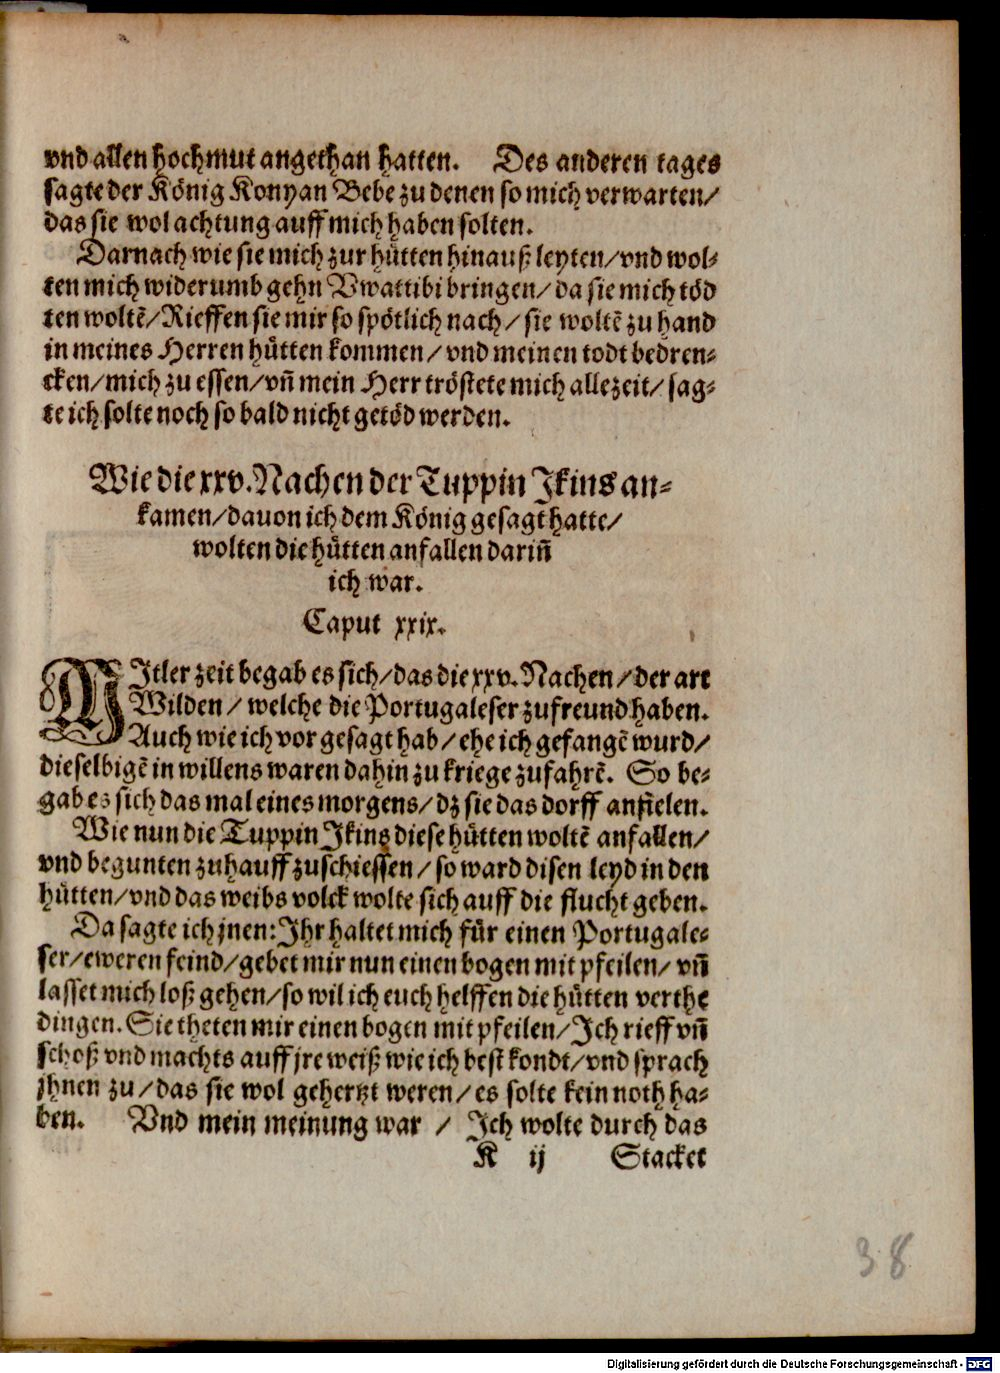 vnd allen hochmut angethan hatten. Des anderen tages
sagte der König Konyan Bebe zu denen so mich verwarten/
das sie wol achtung auff mich haben solten.
Darnach wie sie mich zur hütten hinauß leyten/vnd wol-
ten mich widerumb gehn Vwattibi bringen/da sie mich töd
ten woltẽ/Rieffen sie mir so spötlich nach/sie woltẽ zu hand
in meines Herren hütten kommen/vnd meinen todt bedren-
cken/mich zu essen/vñ mein Herr tröstete mich allezeit/sag-
te ich solte noch so bald nicht getöd werden.
Wie die xxv. Nachen der Tuppin Ikins an-
kamen/dauon ich dem König gesagt hatte/
wolten die hütten anfallen dariñ
ich war.
Caput xxix.
MItler zeit begab es sich/das die xxv. Nachen/der art
Wilden/welche die Portugaleser zu freund haben.
Auch wie ich vor gesagt hab/ehe ich gefangẽ wurd/
dieselbigẽ in willens waren dahin zu kriege zufahrẽ. So be-
gab es sich das mal eines morgens/dz sie das dorff anfielen.
Wie nun die Tuppin Ikins diese hütten woltẽ anfallen/
vnd begunten zuhauff zuschiessen/so ward disen leyd in den
hütten/vnd das weibs volck wolte sich auff die flucht geben.
Da sagte ich jnen: Ihr haltet mich für einen Portugale-
ser/eweren feind/gebet mir nun einen bogen mit pfeilen/vñ
lasset mich loß gehen/so wil ich euch helffen die hütten verthe
dingen. Sie theten mir einen bogen mit pfeilen/Ich rieff vñ
schoß vnd machts auff jre weiß wie ich best kondt/vnd sprach
jhnen zu/das sie wol gehertzt weren/es solte kein noth ha-
ben. Vnd mein meinung war/Ich wolte durch das
K ij Stacket
38
Digitalisierung gefördert durch die Deutsche Forschungsgemeinschaft - DFG